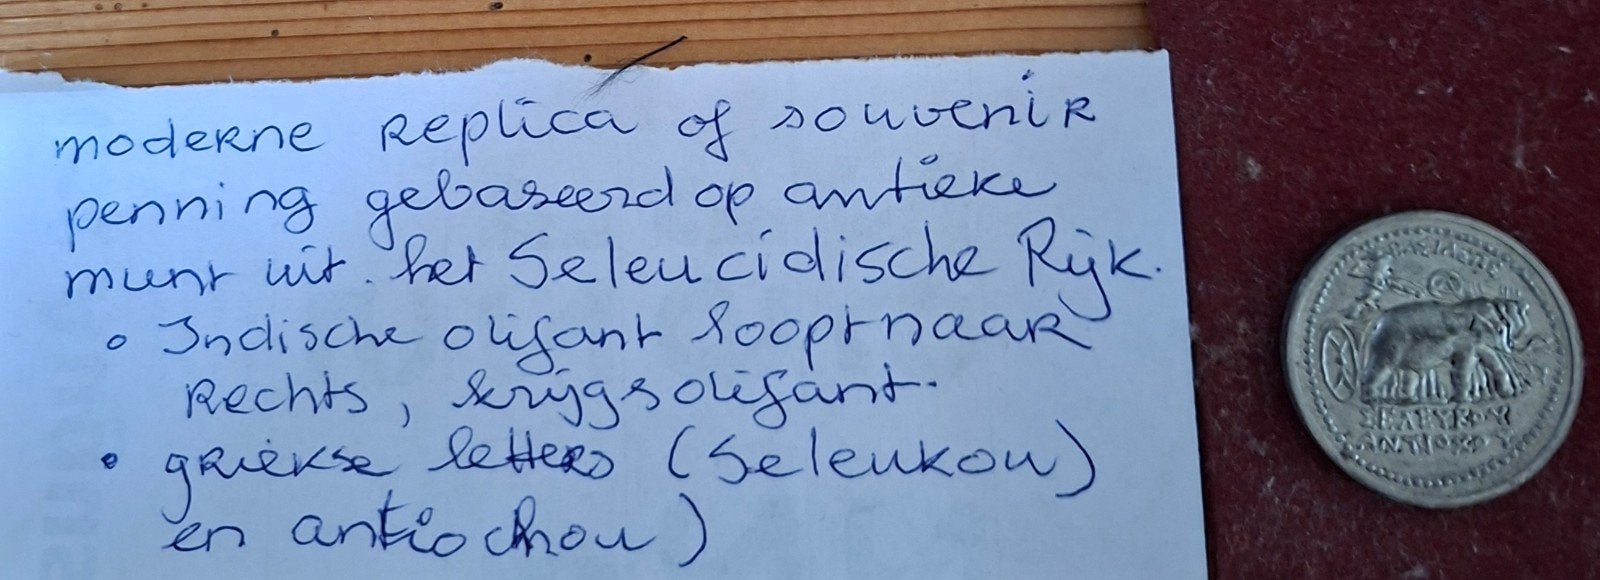 moderne replica of souvenir
penning gebaseerd op antieke
munt uit. het Seleucidische Rijk.
• Indische olifant loopt naar
rechts, krijgsolifant.
• griekse letters (Seleukou)
en antiochou)
ΣΕΛΕΥΚΟΥ
ΑΝΤΙΟΧΟΥ